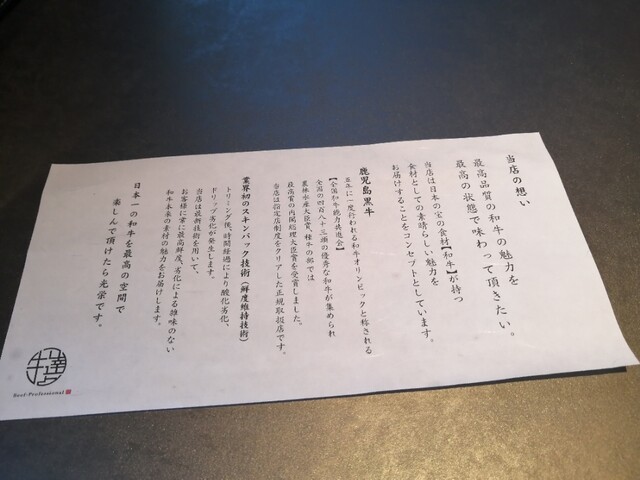 当店の想い
最高品質の和牛の魅力を
最高の状態で味わって頂きたい。
当店は日本の宝の食材【和牛】が持つ
食材としての素晴らしい魅力を
お届けすることをコンセプトとしています。
鹿児島黒牛
五年に一度行われる和牛オリンピックと称される
【全国和牛能力共進会】
全国の四百八十三頭の優秀な和牛が集められ
農林水産大臣賞、種牛の部では
最高賞の内閣総理大臣賞を受賞しました。
当店は指定店制度をクリアした正規取扱店です。
業界初のスキンパック技術(鮮度維持技術)
トリミング後、時間経過により酸化劣化、
ドリップ劣化が発生します。
当店は最新技術を用いて、
お客様に常に最高鮮度、劣化による雑味のない
和牛本来の素材の魅力をお届けします。
日本一の和牛を最高の空間で
楽しんで頂けたら光栄です。
Beef-Professional